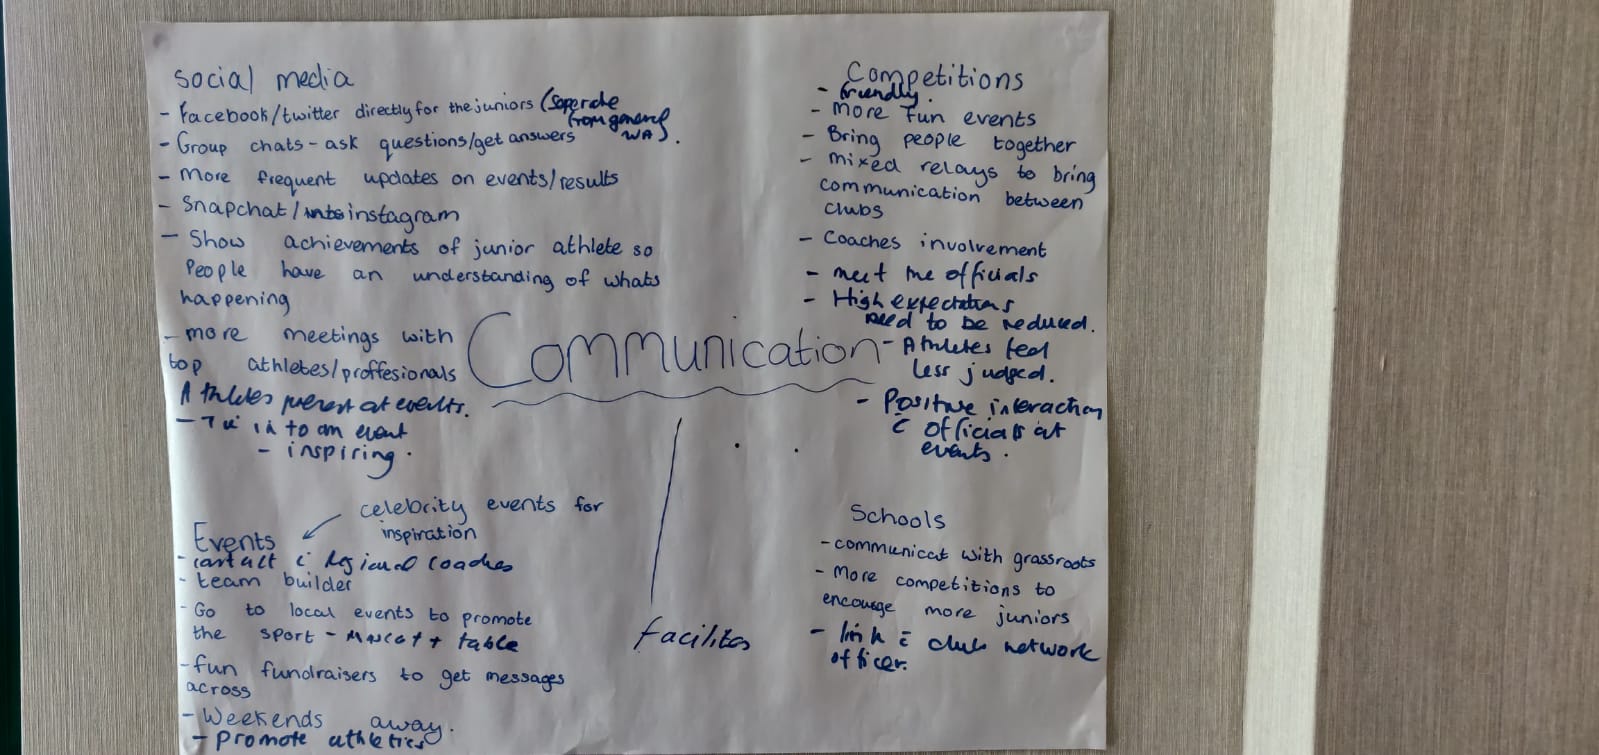 Social media
- Facebook/twitter directly for the juniors (seperate
from general
WA).
- Group chats - ask questions/get answers
- More frequent updates on events/results
- Snapchat/ instagram
- Show achievements of junior athlete so
People have an understanding of whats
happening
- more meetings with
top athletes/proffesionals
Athletes present at events.
- Tie in to an event
- inspiring.
Communication
Competitions
- friendly.
- More Fun events
- Bring people together
- mixed relays to bring
communication between
clubs
- Coaches involvement
- meet the officials
- High expectations
need to be reduced.
- Athletes feel
less judged.
- Positive interaction
c officials at
events.
celebrity events for
inspiration
Events
- contact c Regional coaches
- team builder
- Go to local events to promote
the sport - Mascot + table
- fun fundraisers to get messages
across
- Weekends away.
- Promote athletics
facilites
Schools
- communicat with grassroots
- More competitions to
encourage more juniors
- link c club network
officer.